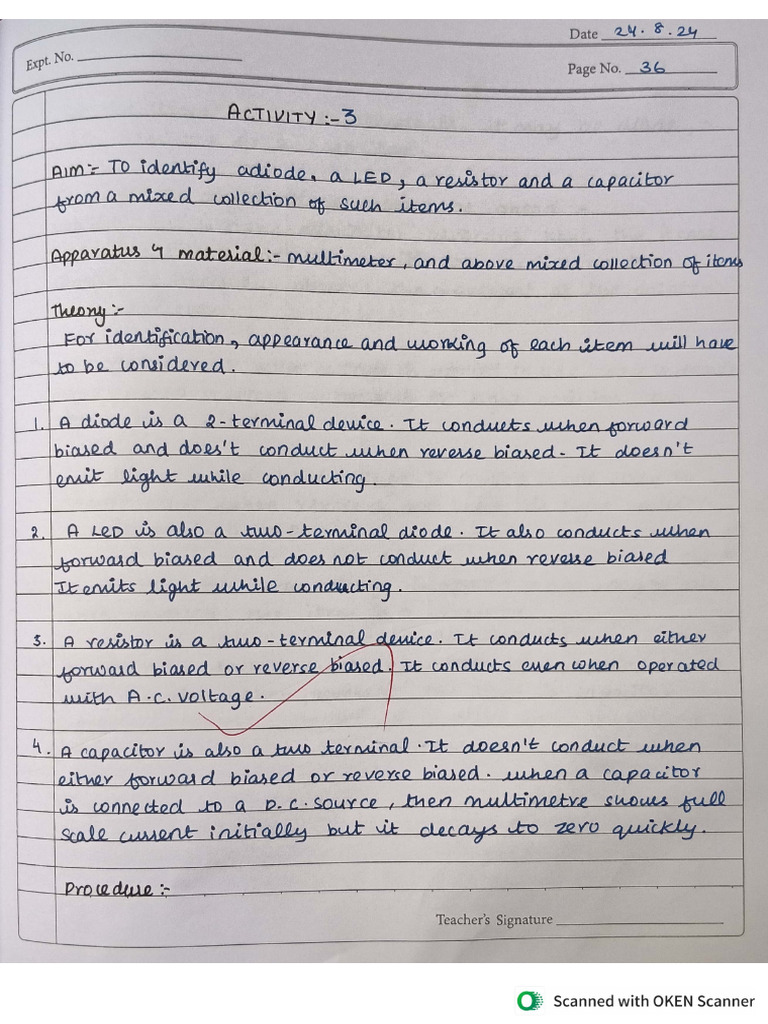 Date 24.8.24
Expt. No.
Page No. 36
ACTIVITY :- 3
Aim:- To identify a diode, a LED, a resistor and a capacitor
from a mixed collection of such items.
Apparatus & material:- multimeter, and above mixed collection of items
Theory:-
For identification, appearance and working of each item will have
to be considered.
1. A diode is a 2-terminal device. It conducts when forward
biased and does't conduct when reverse biased. It doesn't
emit light while conducting.
2. A LED is also a two-terminal diode. It also conducts when
forward biased and does not conduct when reverse biased
It emits light while conducting.
3. A resistor is a two-terminal device. It conducts when either
forward biased or reverse biased. It conducts even when operated
with A.C. voltage.
4. A capacitor is also a two terminal. It doesn't conduct when
either forward biased or reverse biased. when a capacitor
is connected to a D.C. source, then multimetre shows full
scale current initially but it decays to zero quickly.
Procedure:-
Teacher's Signature
Scanned with OKEN Scanner